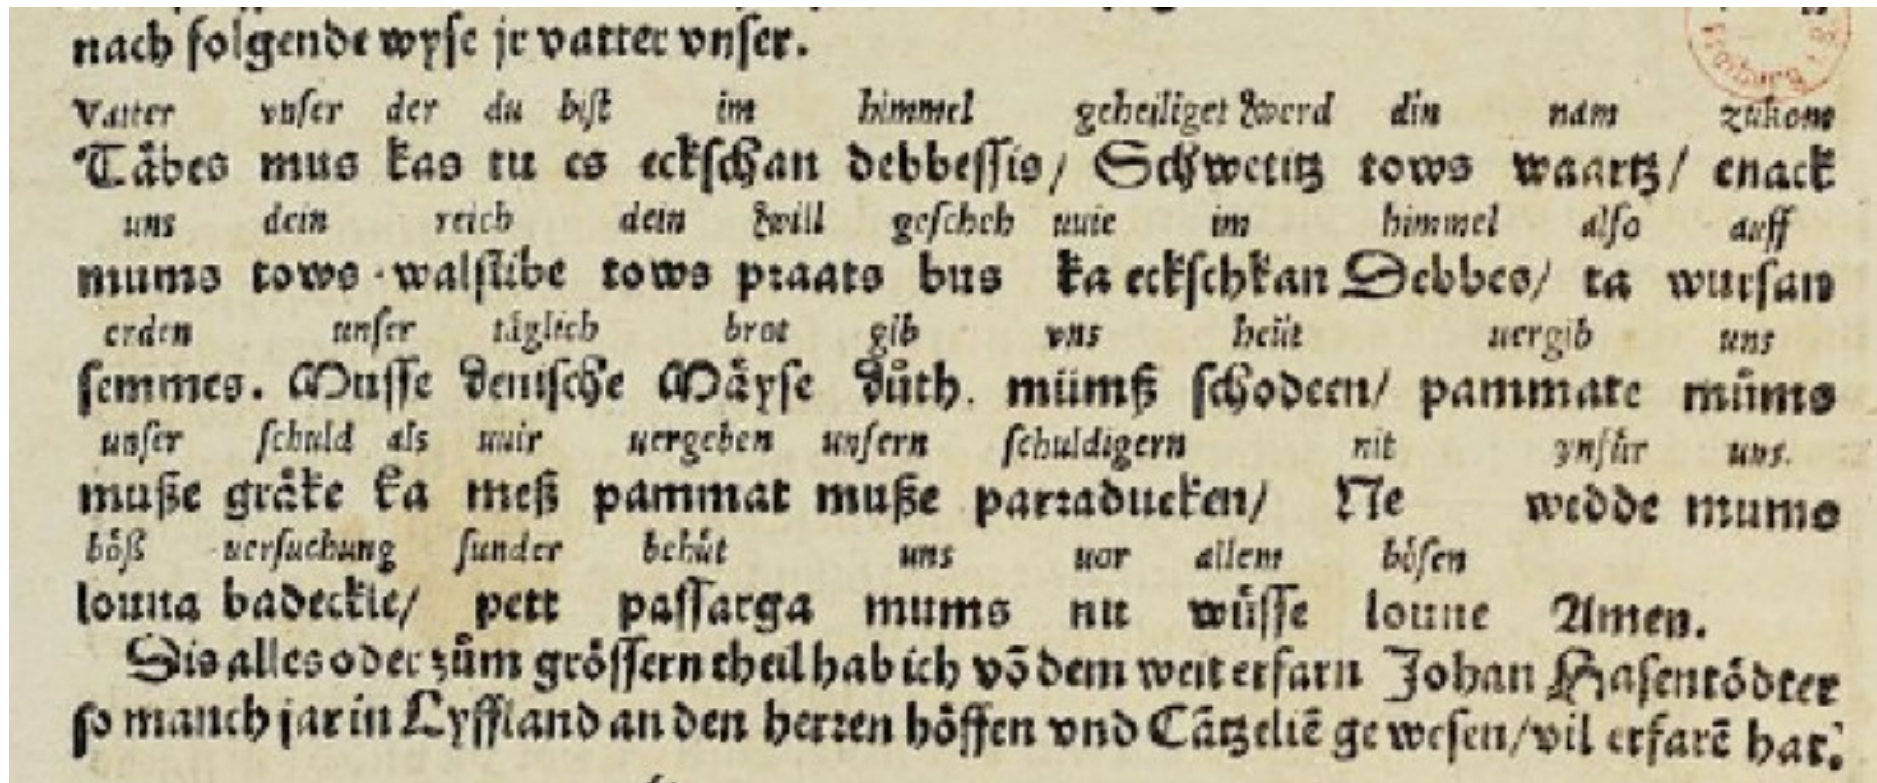 nach folgende wyse jr vatter vnser.
Vatter vnser der du bist im himmel geheiliget werd din nam zukom
Tåbes mus kas tu es eckschan debbessis/ Schwetitz tows waartz/ enack
uns dein reich dein will gescheh uuie im himmel also auff
mums tows walstibe tows praats bus ka eckschkan Debbes/ ta wursan
erden unser täglich brot gib vns heüt uergib uns
semmes. Musse denische Måyse důth. müms̈z schodeen/ pammate můms
unser schuld als uuir uergeben unsern schuldigern nit ynfür uns.
muße gråke ka meß pammat muße parraducken/ Ne wedde mums
böß uersuchung sunder behüt uns uor allem bösen
louna badeckle/ pett passarga mums nu wůsse loune Amen.
Dis alles oder zům grössern theil hab ich võ dem weit erfarn Johan Hasentödter
so manch jar in Lyffland an den herren höffen vnd Cãtzeliẽ gewesen/ vil erfarẽ hat.